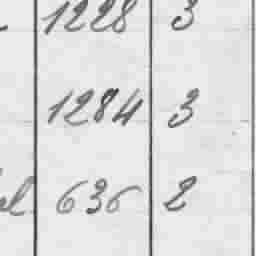 1228 3
1284 3
el 636 2